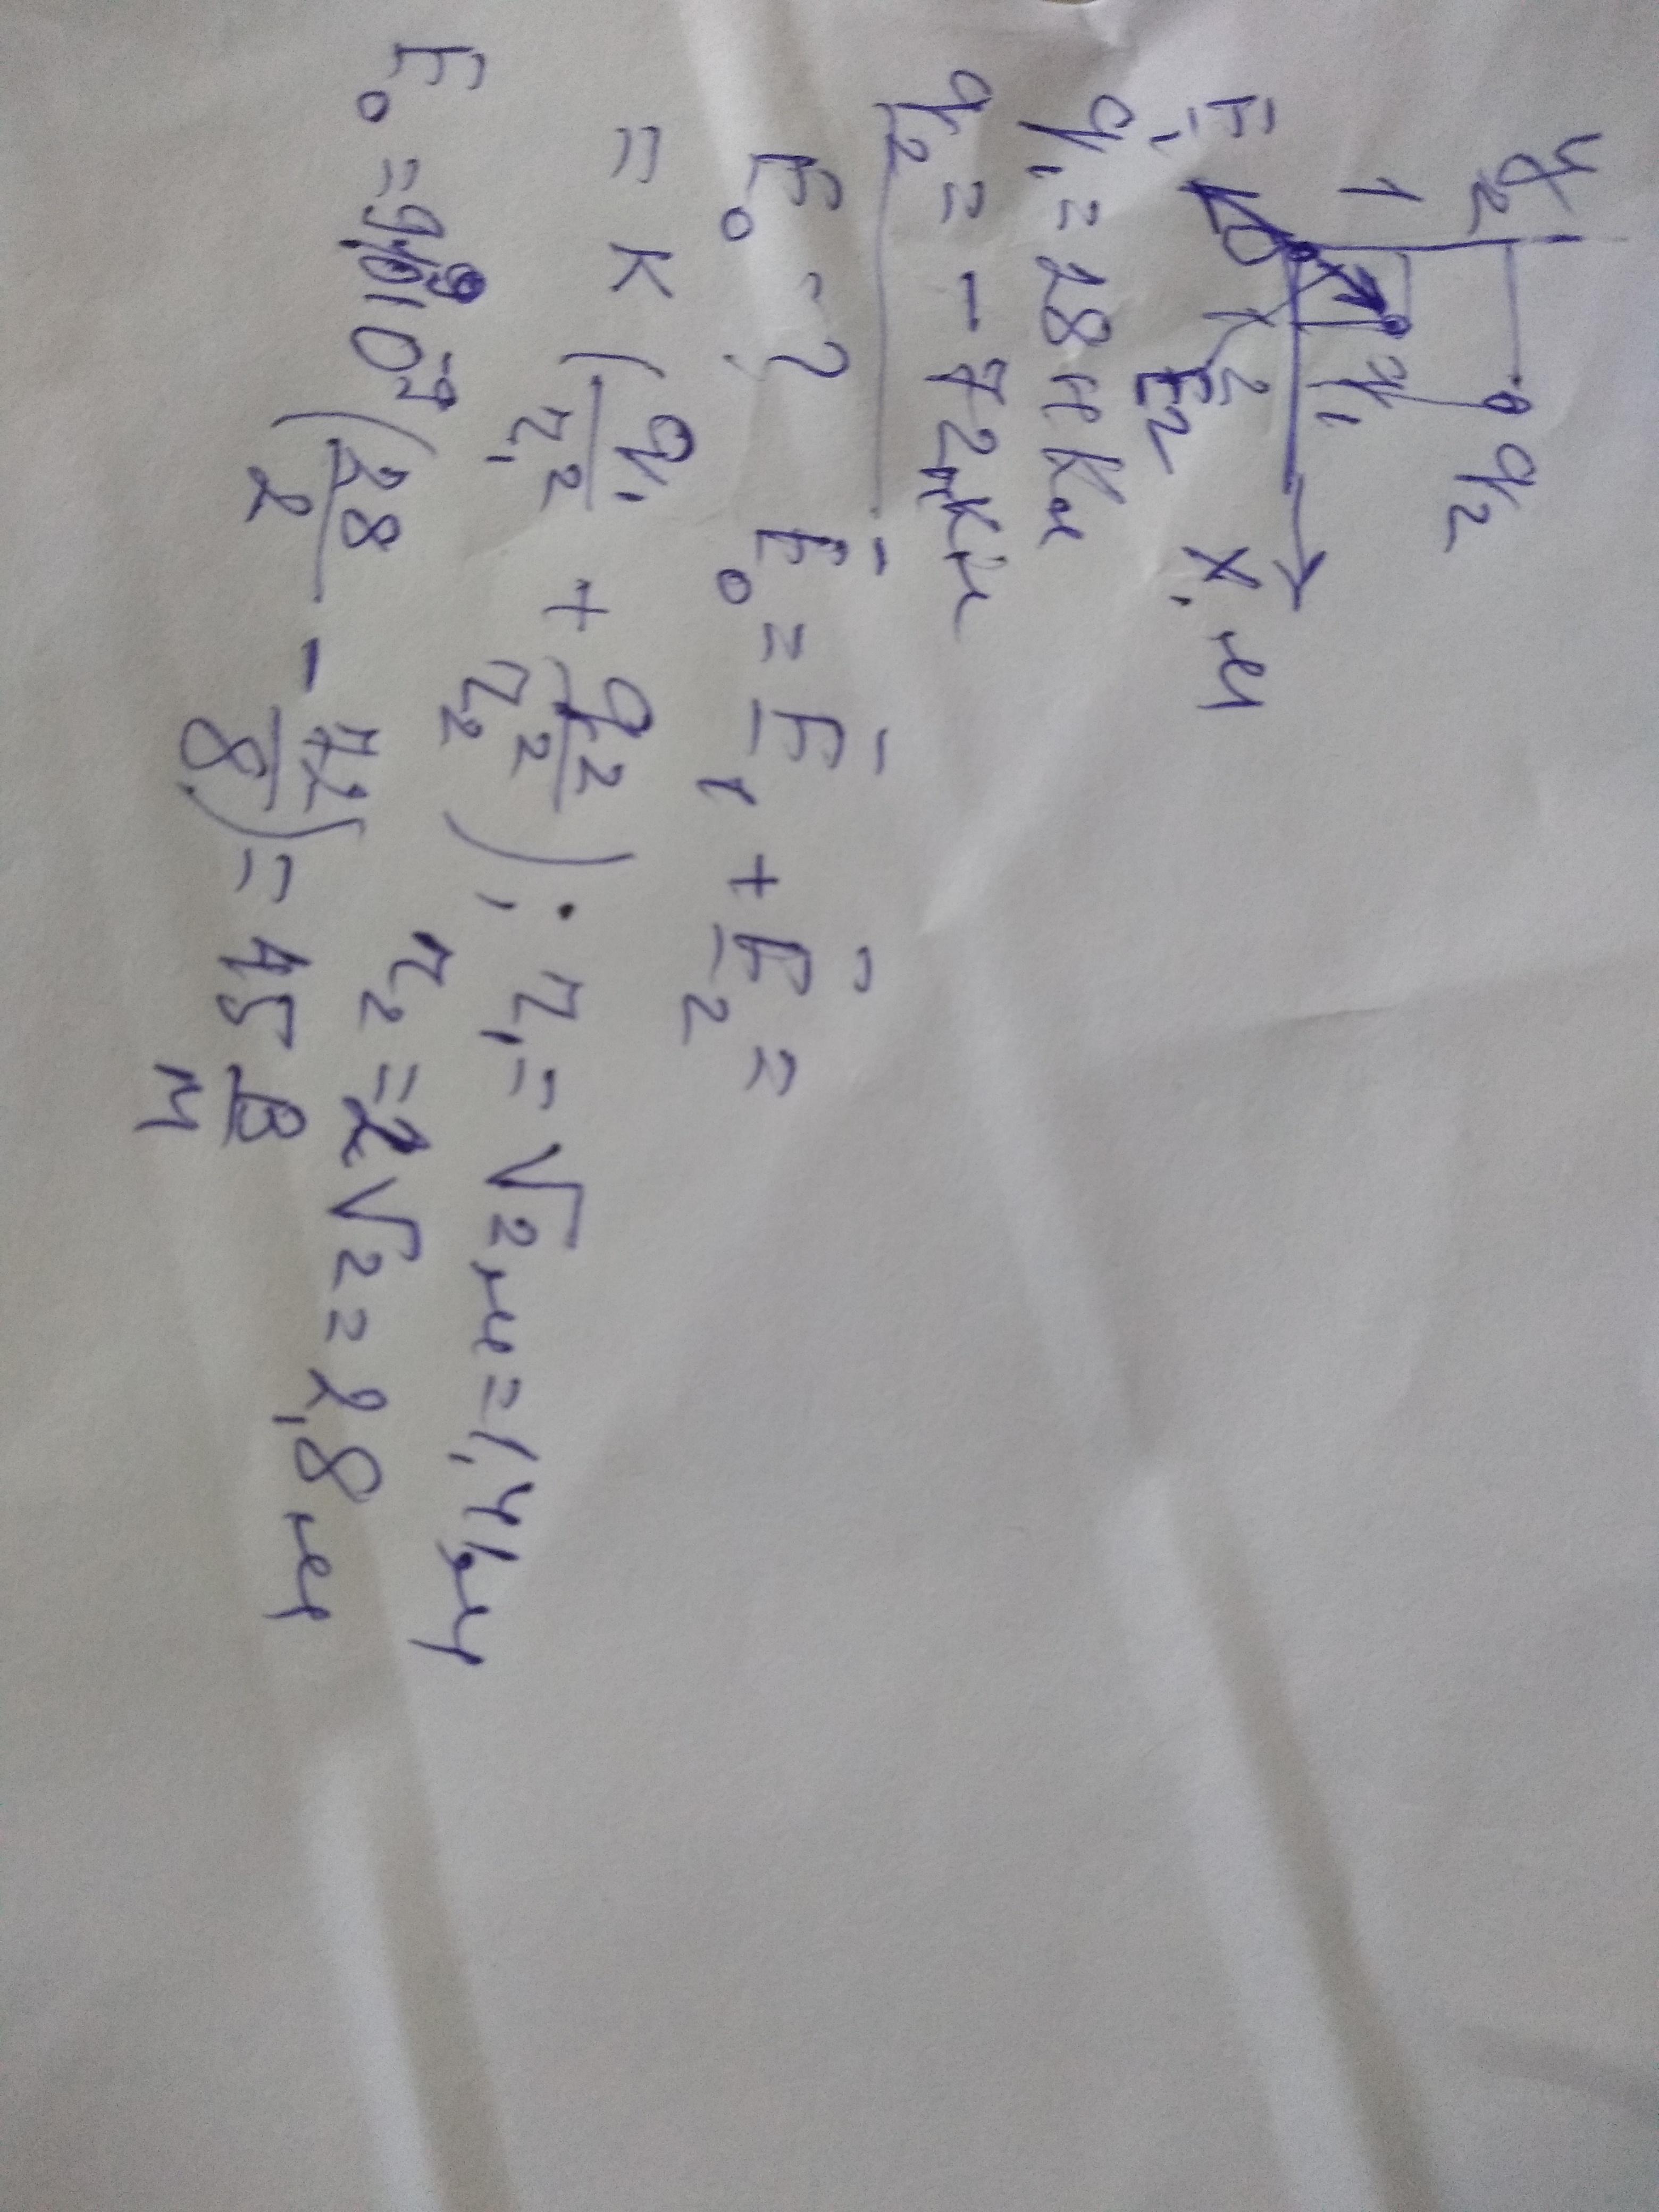 y
2
q₂
1
q₁
0
1
2
x, м
E₁
E₂
q₁ = 28 нКл
q₂ = - 72 нКл
E₀ - ?
Ē₀ = Ē₁ + Ē₂ =
= K (q₁/r₁² + q₂/r₂²); r₁ = √2 м = 1,41 м
r₂ = 2√2 = 2,8 м
E₀ = 9·10⁹·10⁻⁹ (28/2 - 72/8) = 45 В/м